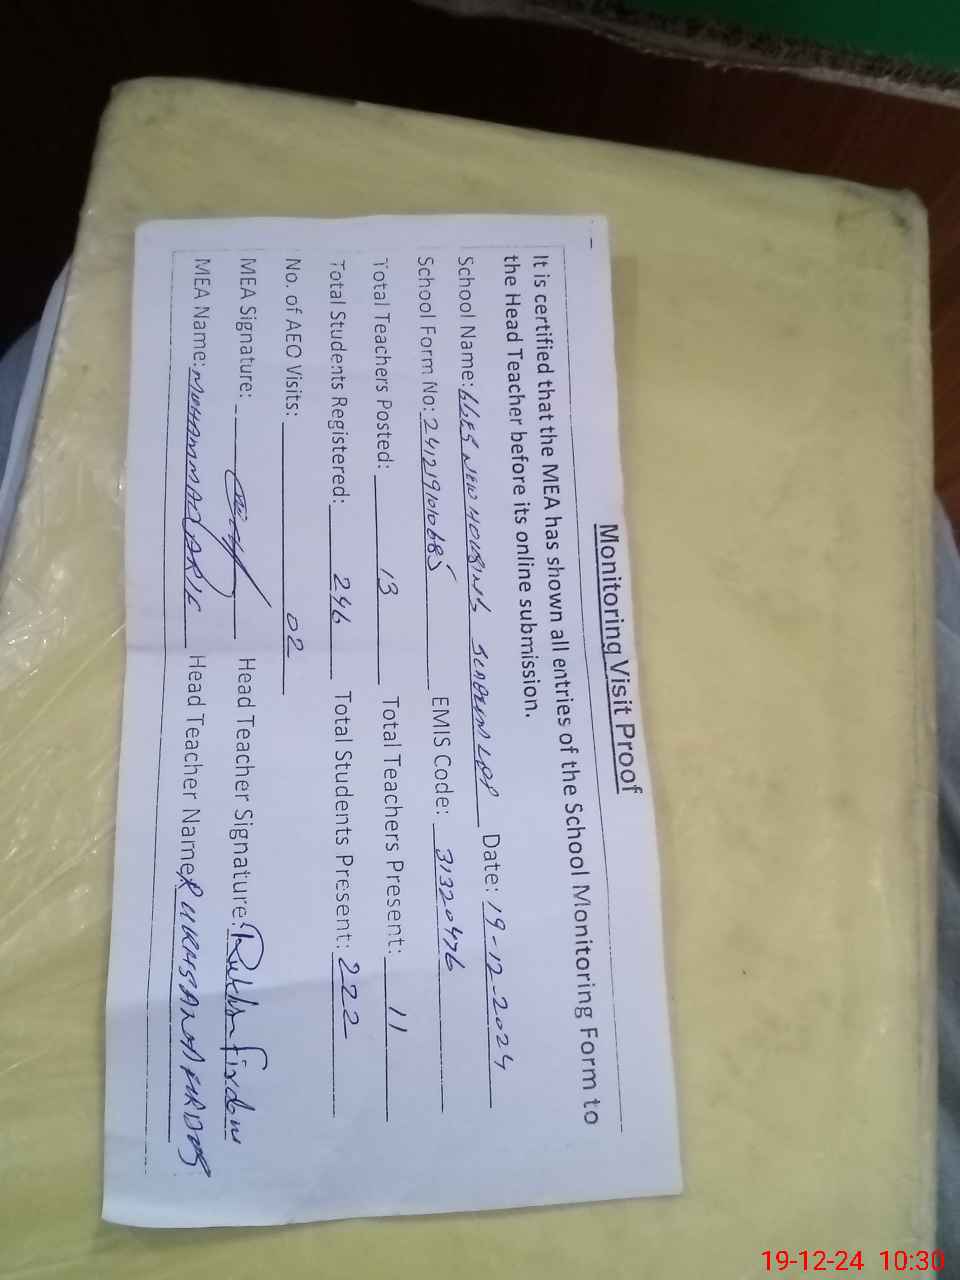 Monitoring Visit Proof
It is certified that the MEA has shown all entries of the School Monitoring Form to
the Head Teacher before its online submission.
School Name: NEW HOUSING Date: 19-12-2024
School Form No: EMIS Code: 31320476
Total Teachers Posted: 13 Total Teachers Present: 11
Total Students Registered: 246 Total Students Present: 222
No. of AEO Visits: 02
MEA Signature: Head Teacher Signature:
MEA Name: MUHAMMAD ARIF Head Teacher Name:
19-12-24 10:30